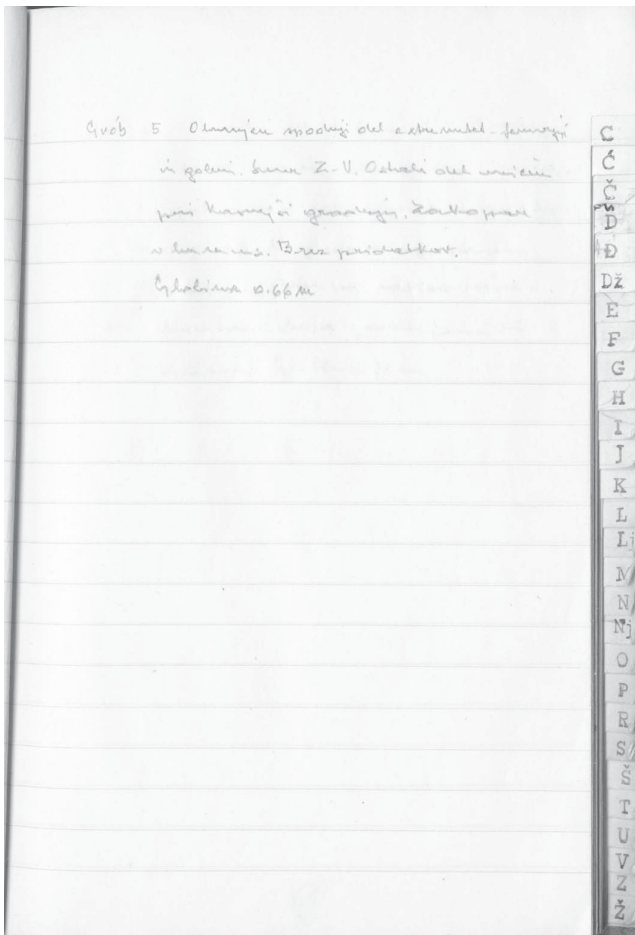 Grob 5 Ohranjen spodnji del ekstremitet - femurji
in goleni. Smer Z-V. Ostali del uničen
pri kasnejši gradnji. Zakopan
v humus. Brez pridatkov.
Globina 0.66 m
C
Ć
Č
D
Đ
Dž
E
F
G
H
I
J
K
L
Lj
M
N
Nj
O
P
R
S
Š
T
U
V
Z
Ž